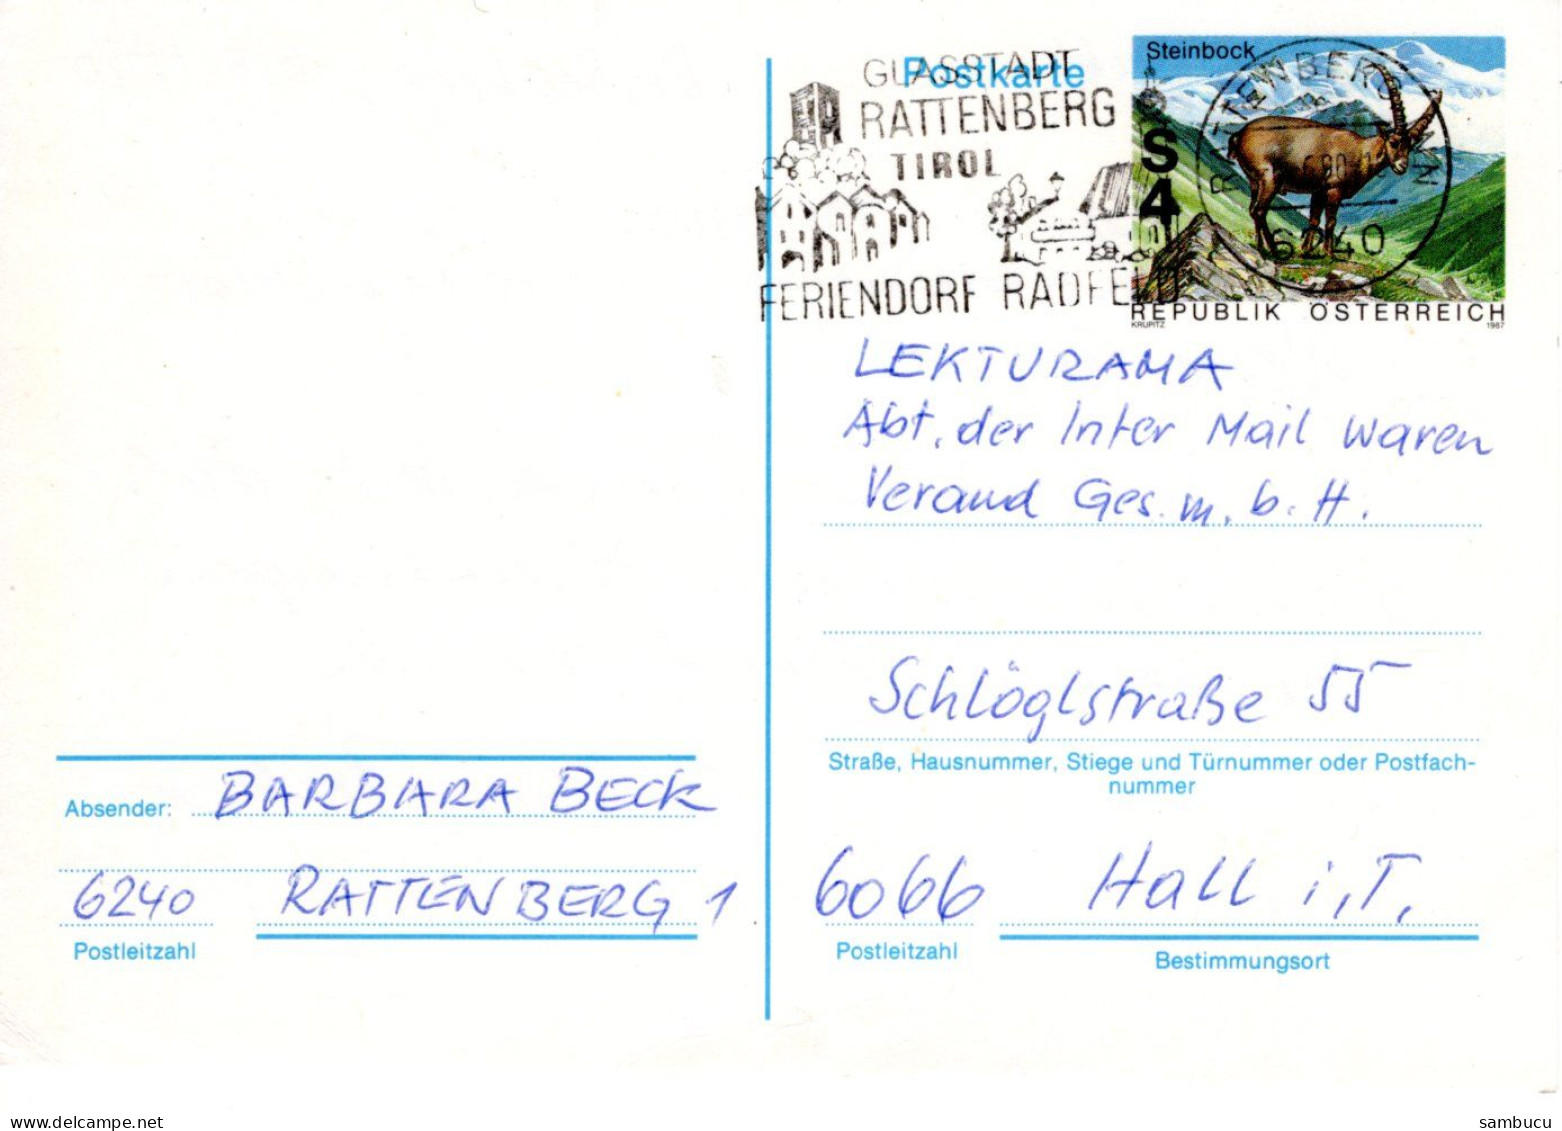 Postkarte
GLASSTADT
RATTENBERG
TIROL
FERIENDORF RADFELD
Steinbock
S
4
RATTENBERG
6240
REPUBLIK ÖSTERREICH
KRUPITZ
1987
LEKTURAMA
Abt. der Inter Mail Waren
Verand Ges. m. b. H.
Schlöglstraße 55
Straße, Hausnummer, Stiege und Türnummer oder Postfach-
nummer
Absender: BARBARA BECK
6240 RATTENBERG 1
Postleitzahl
6066 Hall i. T.
Postleitzahl
Bestimmungsort
www.delcampe.net
sambucu